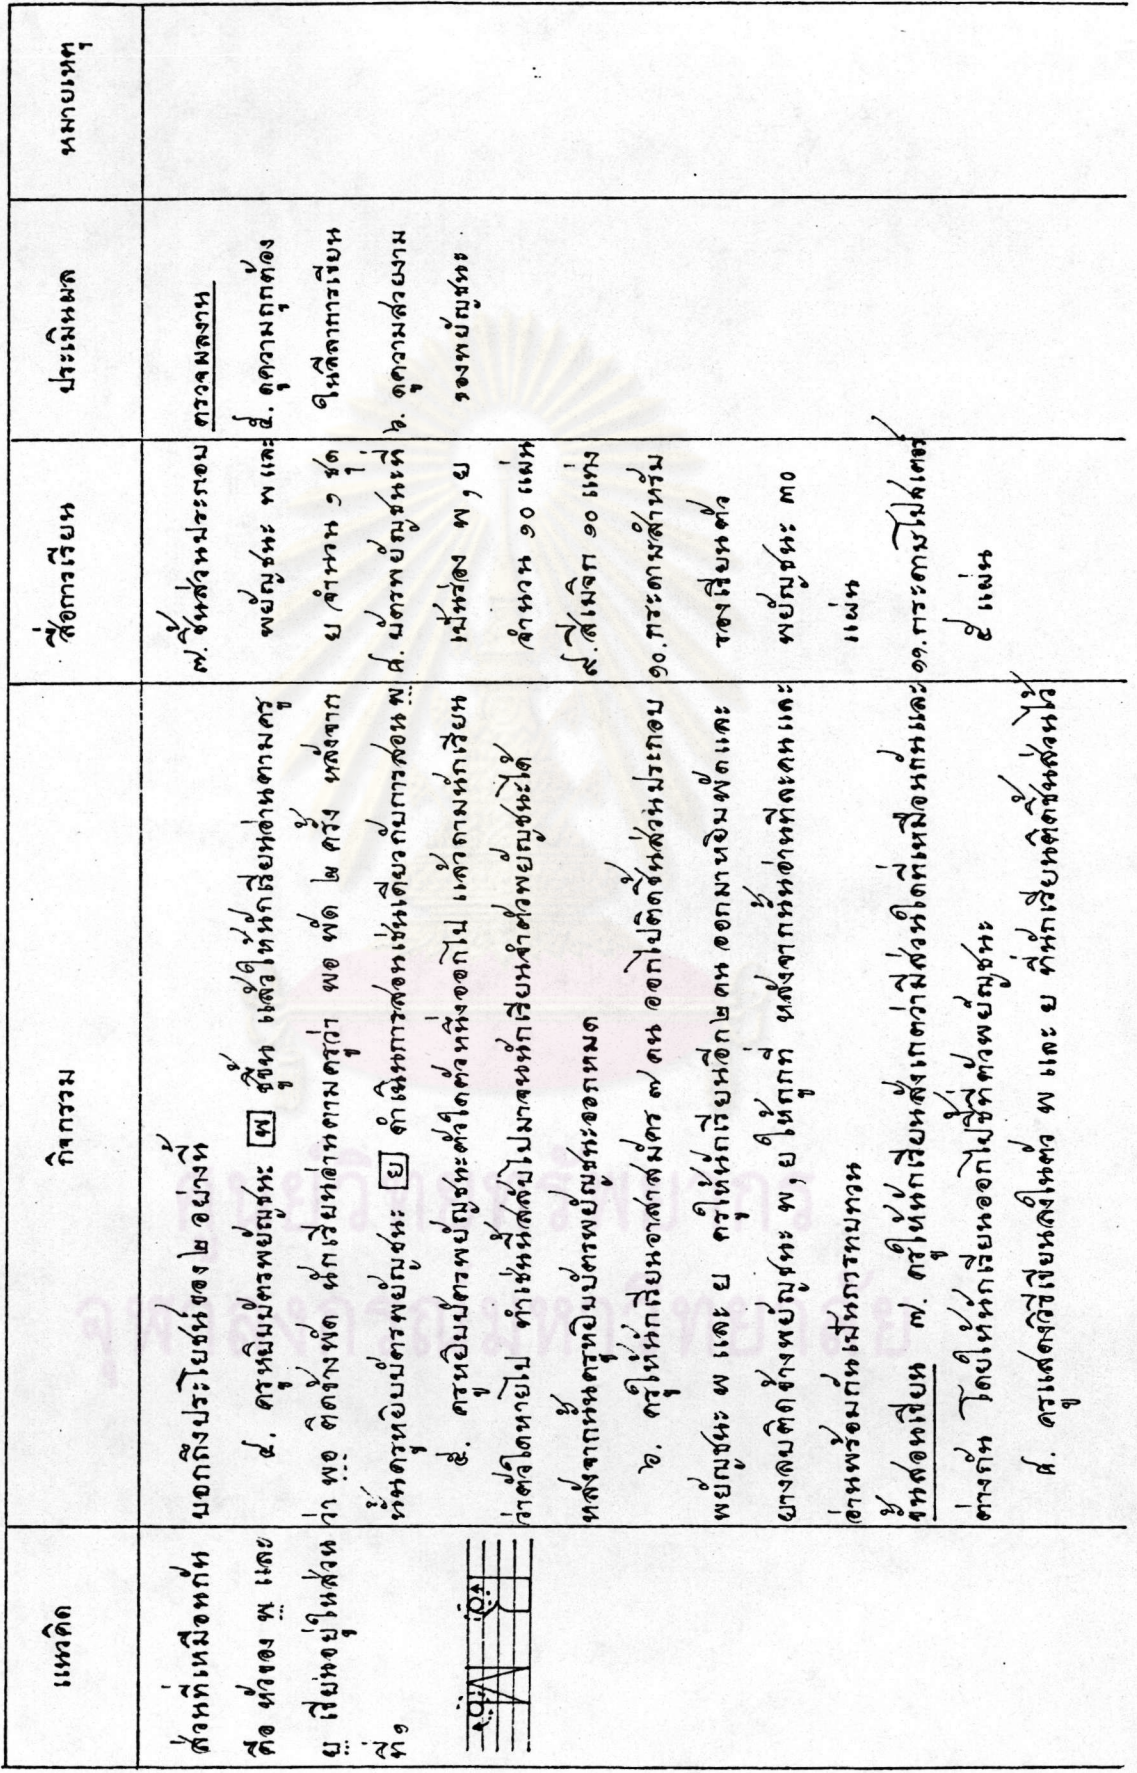 แนวคิด
ส่วนที่เหมือนกัน
คือ หัวของ พ และ
ย เขียนอยู่ในส่วน
ที่ ๑
กิจกรรม
บอกถึงประโยชน์ของ ๒ อย่างนี้
๔. ครูหยิบบัตรพยัญชนะ พ ชูขึ้น แล้วให้นักเรียนอ่านตามครู
ว่า พอ ติดข้างพัด นักเรียนอ่านตามครูว่า พอ พัด ๒ ครั้ง หลังจาก
นั้นครูหยิบบัตรพยัญชนะ ย ดำเนินการสอนเช่นเดียวกับการสอน พ
๕. ครูหยิบบัตรพยัญชนะตัวใดตัวหนึ่งออกไป แล้วถามนักเรียน
ว่าตัวใดหายไป ทำเช่นนี้สลับไปมาจนนักเรียนจำตัวพยัญชนะได้
หลังจากนั้นครูหยิบบัตรพยัญชนะออกหมด
๖. ครูให้นักเรียนอาสาสมัคร ๗ คน ออกไปติดชิ้นส่วนประกอบ
พยัญชนะ พ และ ย ครูให้นักเรียนอีก ๒ คน ออกมาหยิบพัดและ
ยางลบติดข้างพยัญชนะ พ, ย ให้ถูกที่ หลังจากนั้นอ่านทีละคนและ
อ่านพร้อมกันเป็นการทบทวน
ขั้นสอนเขียน ๗. ครูให้นักเรียนสังเกตว่ามีส่วนใดที่เหมือนกันและ
ต่างกัน โดยให้นักเรียนออกไปชี้ที่ตัวพยัญชนะ
๘. ครูแสดงวิธีเขียนลงในตัว พ และ ย ที่นักเรียนติดชิ้นส่วนไว้
สื่อการเรียน
๗. ชิ้นส่วนประกอบ
พยัญชนะ พ และ
ย จำนวน ๑ ชุด
๘. บัตรพยัญชนะที่
เป็นร่อง พ, ย
จำนวน ๑๐ แผ่น
๙. สีเมจิก ๑๐ แท่ง
๑๐. กระดาษสำหรับ
รองเขียนตัว
พยัญชนะ ๓๐
แผ่น
๑๑. กระดาษโปสเตอร์
๕ แผ่น
ประเมินผล
ตรวจผลงาน
๕. ดูความถูกต้อง
ในลีลาการเขียน
๖. ดูความสวยงาม
ของพยัญชนะ
หมายเหตุ
ศูนย์วิทยทรัพยากร
จุฬาลงกรณ์มหาวิทยาลัย